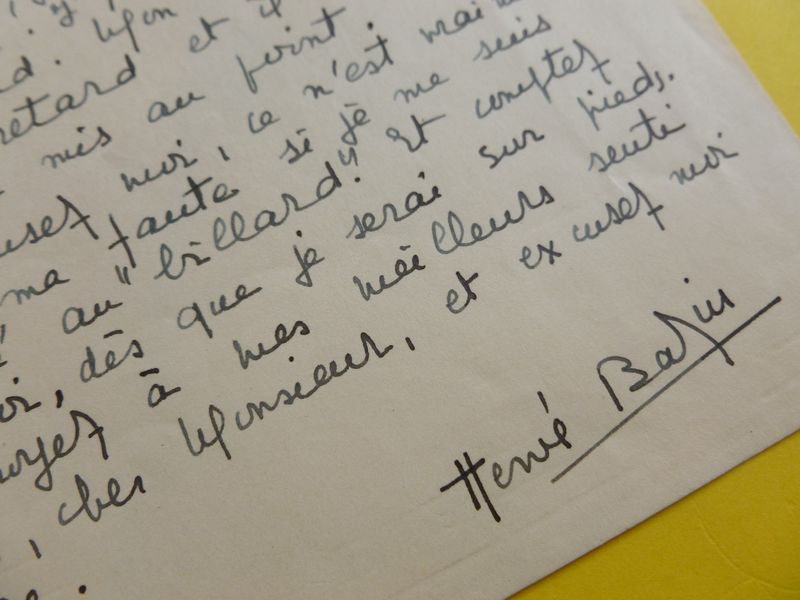 d. Mon
retard et
mis au point.
usez moi, ce n'est vrai
ma faute si je me suis
au "billard". Et comptez
oi, dès que je serai sur pieds.
oyez à mes meilleurs senti
, cher Monsieur, et excusez moi
Hervé Bazin